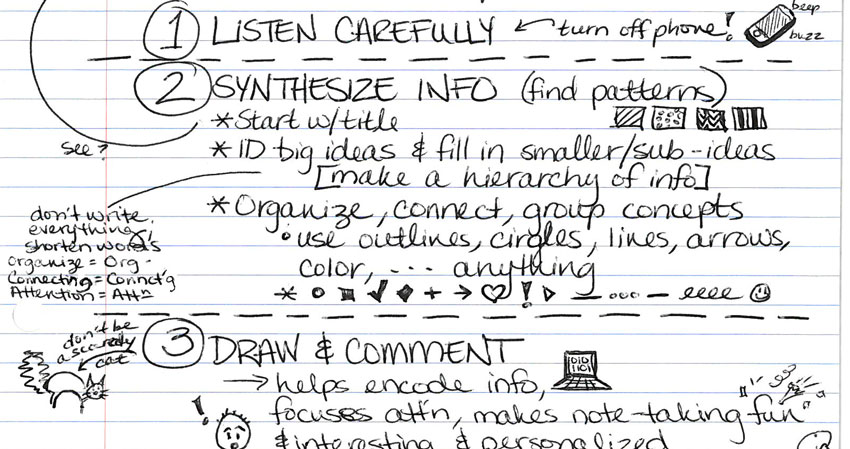 1 LISTEN CAREFULLY ← turn off phone!
beep
buzz
2 SYNTHESIZE INFO (find patterns)
* Start w/title
see?
* ID big ideas & fill in smaller/sub-ideas
[make a hierarchy of info]
* Organize, connect, group concepts
• use outlines, circles, lines, arrows,
color, --- anything
don't write
everything
shorten words
Organize = Org -
Connecting = Connct'g
Attention = Attn
3 DRAW & COMMENT
don't be
a scaredy
cat
→ helps encode info,
0101
1101
focuses att'n, makes note-taking "fun"
& interesting & personalized